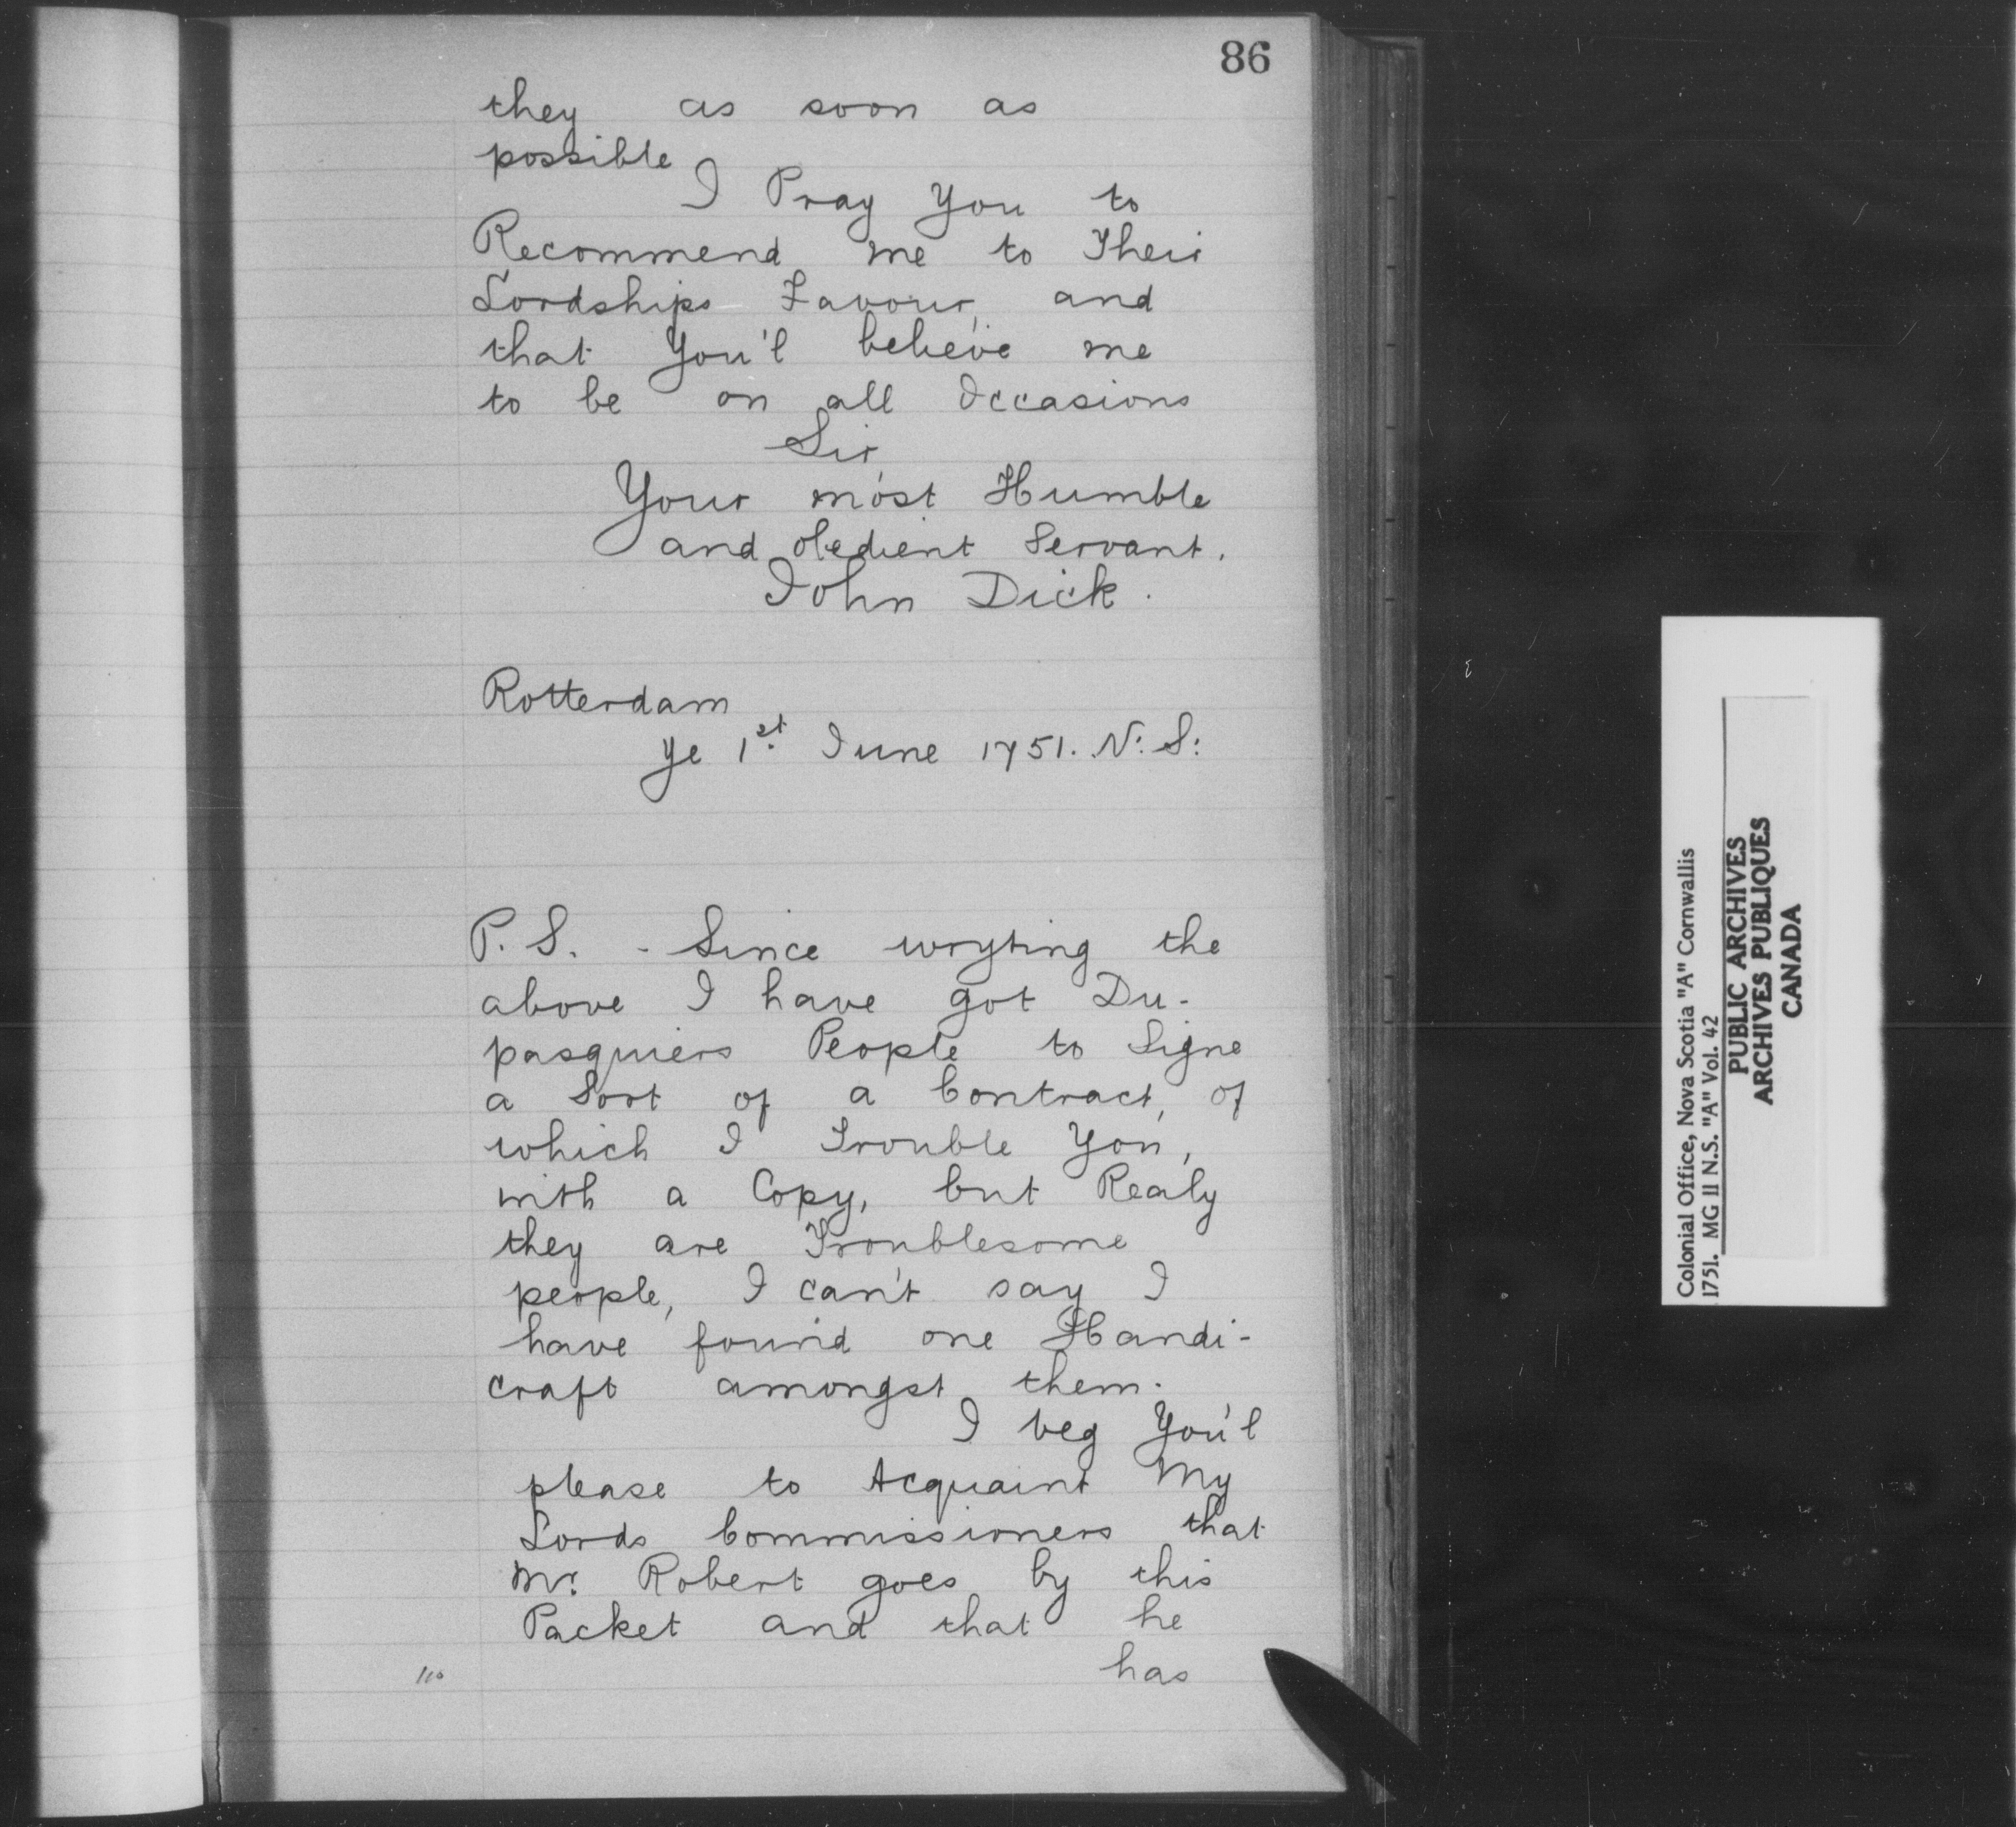 86
they as soon as
possible
I Pray You to
Recommend me to Their
Lordships Favour, and
that You'l believe me
to be on all Occasions
Sir,
Your most Humble
and obedient Servant.
John Dick.
Rotterdam
ye 1st June 1751. N: S:
P. S. - Since wryting the
above I have got Du-
pasquiers People to Signe
a Sort of a Contract, of
which I Trouble You,
with a Copy, but Realy
they are Troublesome
people, I can't say I
have found one Handi-
craft amongst them.
I beg You'l
please to Acquaint My
Lords Commissioners that
Mr. Robert goes by this
Packet and that he
has
110
Colonial Office, Nova Scotia "A" Cornwallis
1751. MG 11 N.S. "A" Vol. 42
PUBLIC ARCHIVES
ARCHIVES PUBLIQUES
CANADA